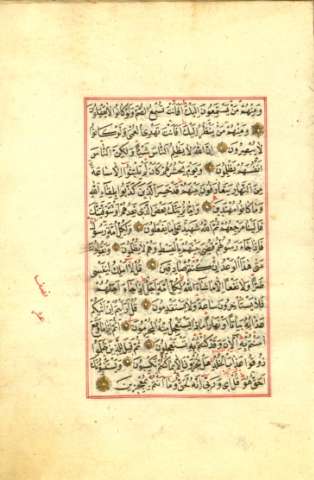 وَمِنْهُمْ مَنْ يَسْتَمِعُونَ اِلَيْكَ اَفَاَنْتَ تُسْمِعُ الصُّمَّ وَلَوْ كَانُوا لَا يَعْقِلُونَ
وَمِنْهُمْ مَنْ يَنْظُرُ اِلَيْكَ اَفَاَنْتَ تَهْدِي الْعُمْيَ وَلَوْ كَانُوا
لَا يُبْصِرُونَ اِنَّ اللهَ لَا يَظْلِمُ النَّاسَ شَيْئًا وَلٰكِنَّ النَّاسَ
اَنْفُسَهُمْ يَظْلِمُونَ وَيَوْمَ يَحْشُرُهُمْ كَاَنْ لَمْ يَلْبَثُوا اِلَّا سَاعَةً
مِنَ النَّهَارِ يَتَعَارَفُونَ بَيْنَهُمْ قَدْ خَسِرَ الَّذِينَ كَذَّبُوا بِلِقَاءِ اللهِ
وَمَا كَانُوا مُهْتَدِينَ وَاِمَّا نُرِيَنَّكَ بَعْضَ الَّذِي نَعِدُهُمْ اَوْ نَتَوَفَّيَنَّكَ
فَاِلَيْنَا مَرْجِعُهُمْ ثُمَّ اللهُ شَهِيدٌ عَلٰى مَا يَفْعَلُونَ وَلِكُلِّ اُمَّةٍ رَسُولٌ
فَاِذَا جَاءَ رَسُولُهُمْ قُضِيَ بَيْنَهُمْ بِالْقِسْطِ وَهُمْ لَا يُظْلَمُونَ وَيَقُولُونَ
مَتٰى هٰذَا الْوَعْدُ اِنْ كُنْتُمْ صَادِقِينَ قُلْ لَا اَمْلِكُ لِنَفْسِي
ضَرًّا وَلَا نَفْعًا اِلَّا مَا شَاءَ اللهُ لِكُلِّ اُمَّةٍ اَجَلٌ اِذَا جَاءَ اَجَلُهُمْ
فَلَا يَسْتَأْخِرُونَ سَاعَةً وَلَا يَسْتَقْدِمُونَ قُلْ اَرَاَيْتُمْ اِنْ اَتٰيكُمْ
عَذَابُهُ بَيَاتًا اَوْ نَهَارًا مَاذَا يَسْتَعْجِلُ مِنْهُ الْمُجْرِمُونَ اَثُمَّ اِذَا مَا وَقَعَ
اٰمَنْتُمْ بِهِ آلْاٰنَ وَقَدْ كُنْتُمْ بِهِ تَسْتَعْجِلُونَ ثُمَّ قِيلَ لِلَّذِينَ ظَلَمُوا
ذُوقُوا عَذَابَ الْخُلْدِ هَلْ تُجْزَوْنَ اِلَّا بِمَا كُنْتُمْ تَكْسِبُونَ وَيَسْتَنْبِؤُنَكَ
اَحَقٌّ هُوَ قُلْ اِي وَرَبِّي اِنَّهُ لَحَقٌّ وَمَا اَنْتُمْ بِمُعْجِزِينَ